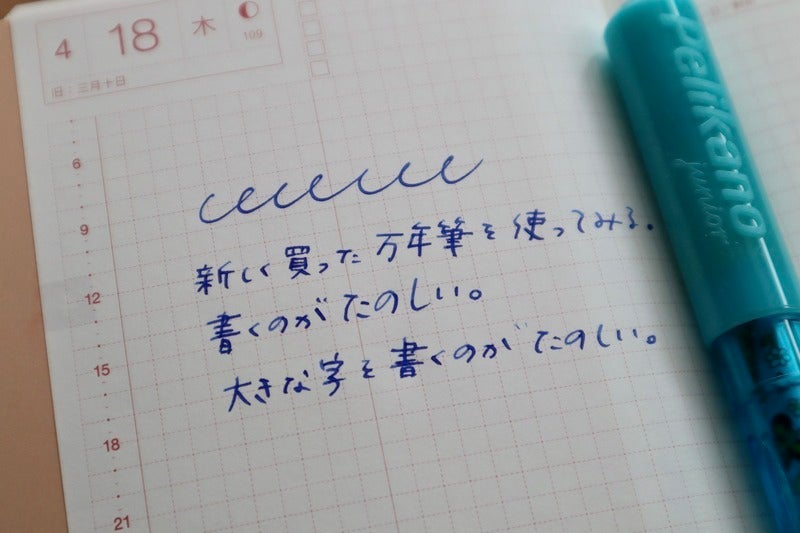 4 18 木
109
旧：三月十日
6
9
12
15
18
21
新しく買った万年筆を使ってみる。
書くのがたのしい。
大きな字を書くのがたのしい。
Pelikano
junior